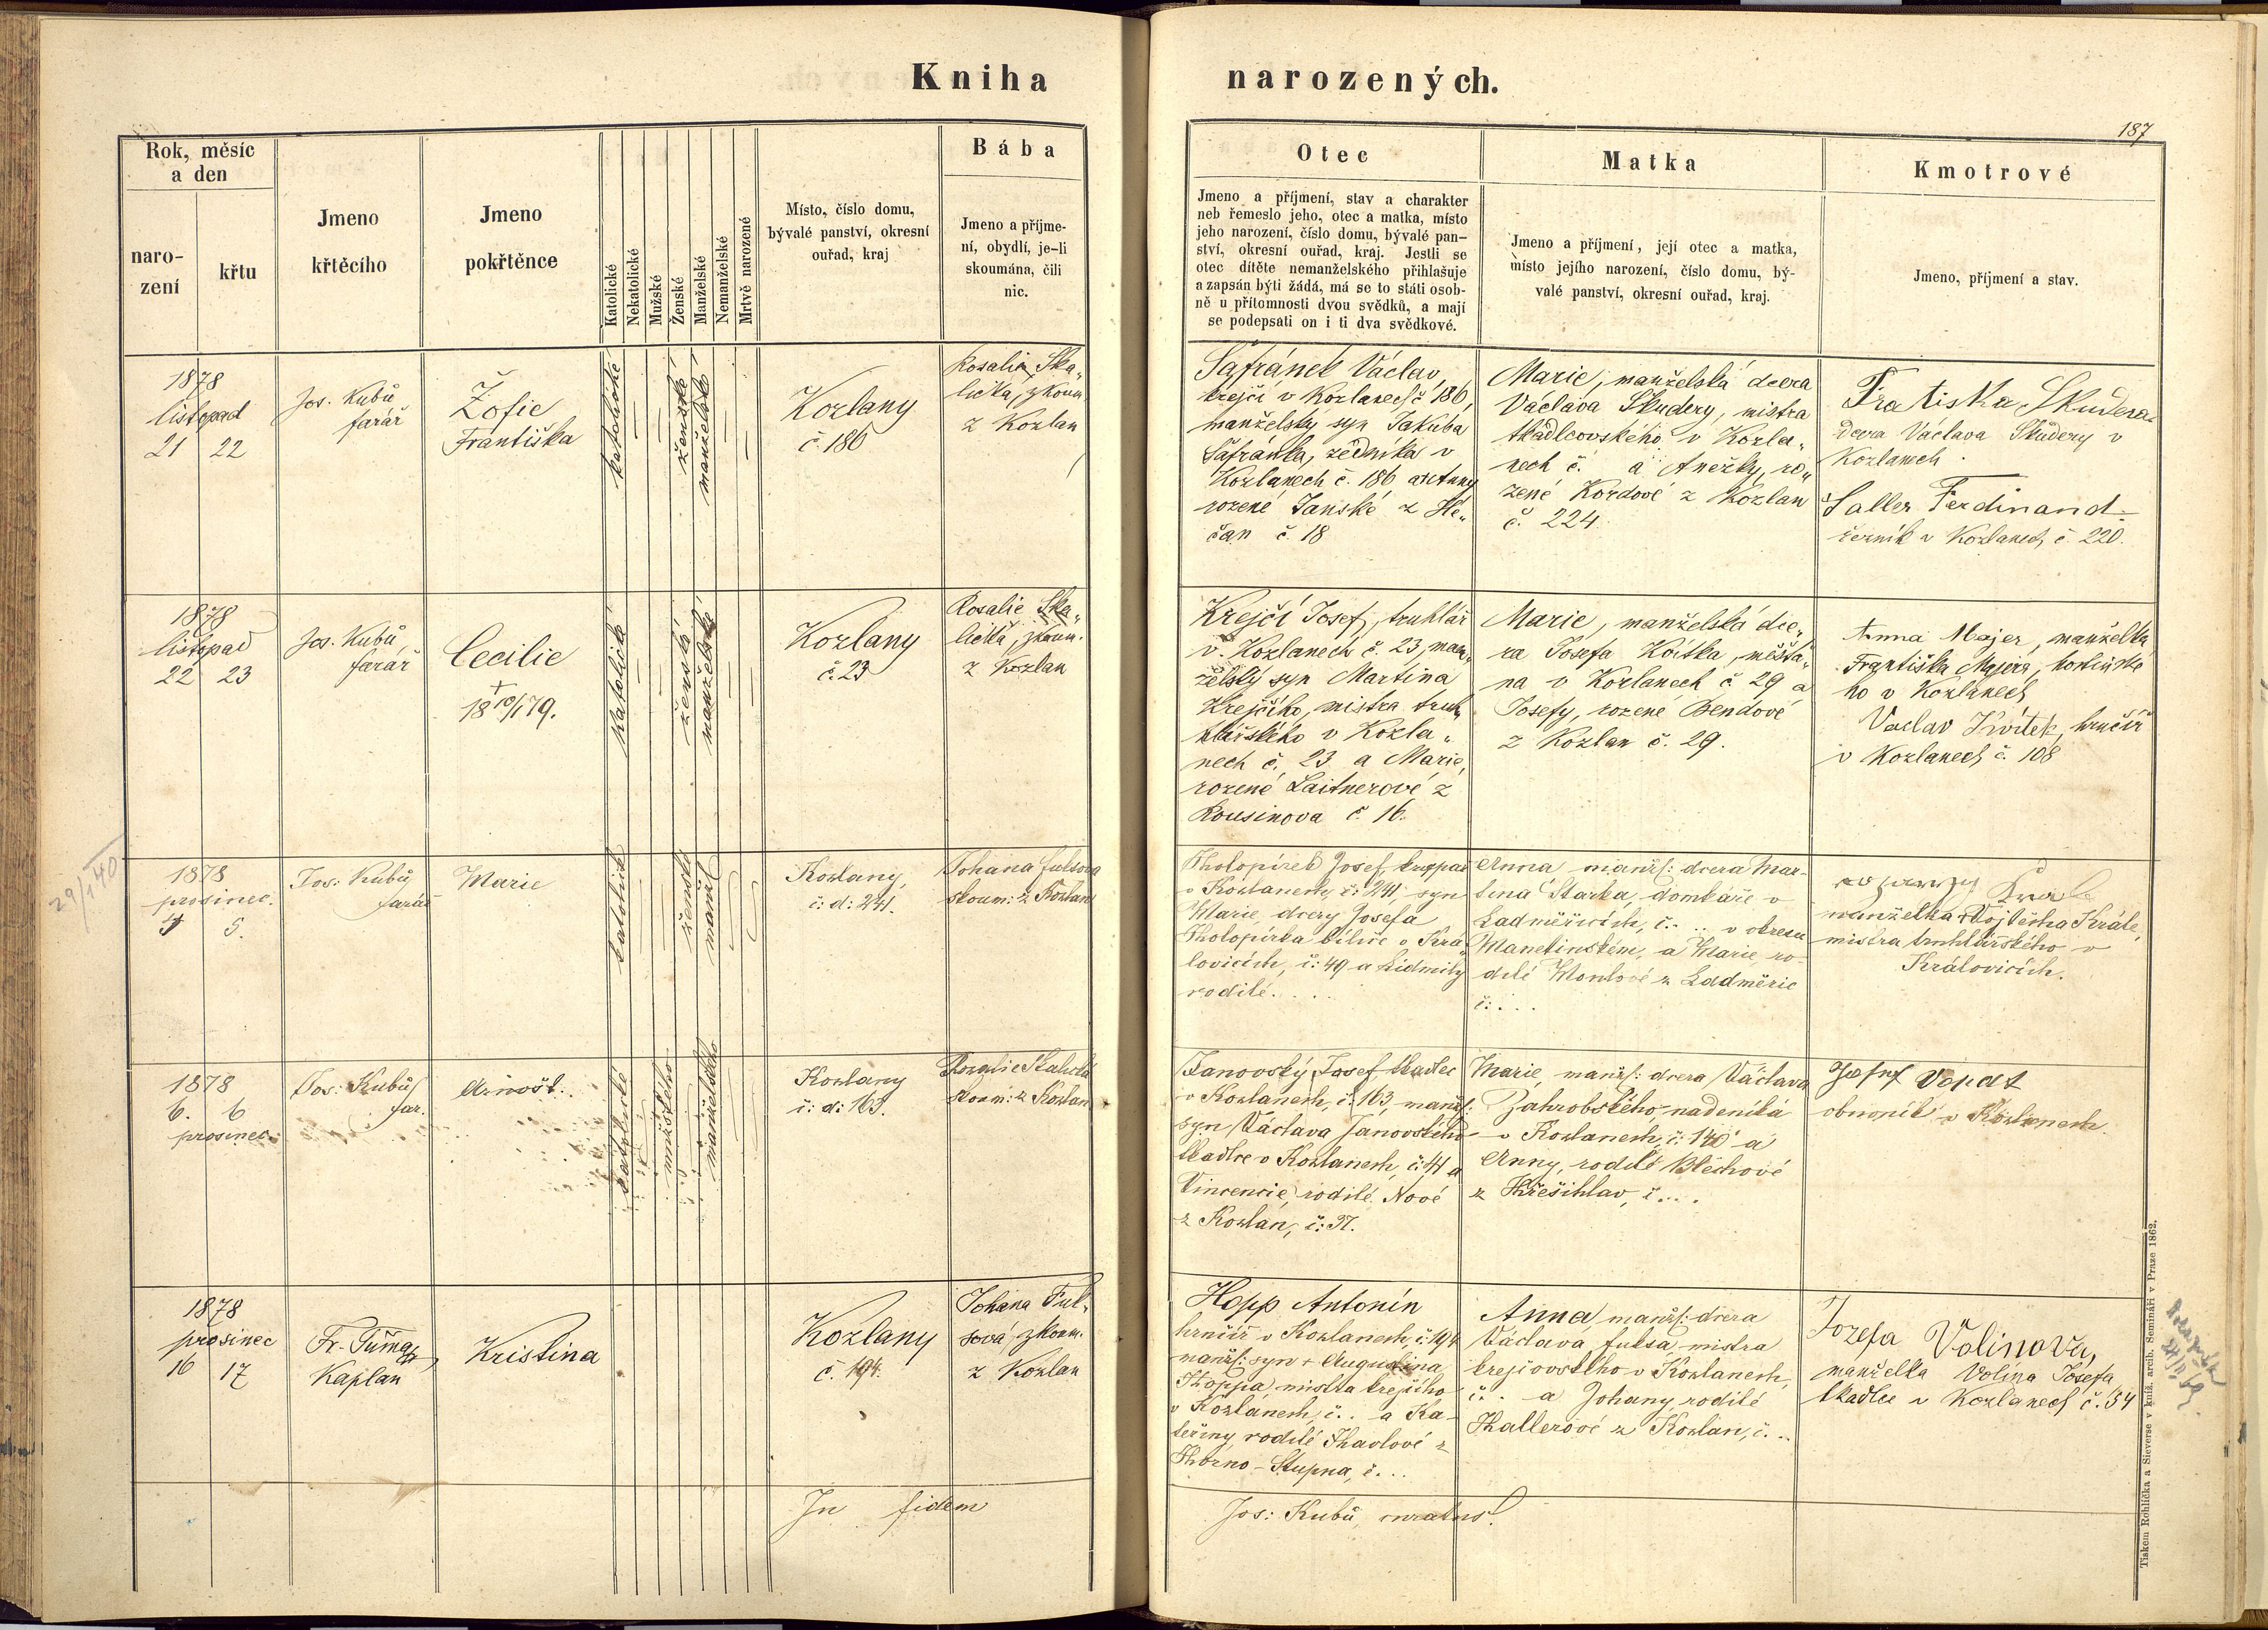 Kniha narozených.
187
Rok, měsíc
a den
naro-
zení
křtu
Jmeno
křtěcího
Jmeno
pokřtěnce
Katolické
Nekatolické
Mužské
Ženské
Manželské
Nemanželské
Mrtvě narozené
Místo, číslo domu,
bývalé panství, okresní
ouřad, kraj
Bába
Jmeno a příjme-
ní, obydlí, je-li
skoumána, čili
nic.
Otec
Jmeno a příjmení, stav a charakter
neb řemeslo jeho, otec a matka, místo
jeho narození, číslo domu, bývalé pan-
ství, okresní ouřad, kraj. Jestli se
otec dítěte nemanželského přihlašuje
a zapsán býti žádá, má se to státi osob-
ně u přítomnosti dvou svědků, a mají
se podepsati on i ti dva svědkové.
Matka
Jmeno a příjmení, její otec a matka,
místo jejího narození, číslo domu, bý-
valé panství, okresní ouřad, kraj.
Kmotrové
Jmeno, příjmení a stav.
1878
listopad
21 22
Jos. Kubů
farář
Žofie
Františka
katolické
ženské
manželské
Kozlany
č. 186
Rosalie Ska„
lická, zkoum.
z Kozlan
Šafránek Václav,
krejčí v Kozlanech č 186,
manželský syn Jakuba
Šafránka, zedníka v
Kozlanech č. 186 a
rozené Janské z He„
čan č. 18
Marie, manželská dcera
Václava Škudery, mistra
tkadlcovského v Kozla„
nech č. a Anežky, ro„
zené Kordové z Kozlan
č. 224.
Fratiska Skudera
dcera Václava Škudery v
Kozlanech.
Saller Ferdinand
řezník v Kozlanech č. 220.
1878
listopad
22 23
Jos. Kubů
farář
Cecilie
+
18 10/1 79.
katolické
ženské
manželské
Kozlany
č. 23
Rosalie Ska„
lická, zkoum.
z Kozlan
Krejčí Josef, truhlář
v Kozlanech č. 23, man„
želský syn Martina
Krejčího, mistra truh„
lářského v Kozla„
nech č. 23 a Marie,
rozené Laitnerové z
Rousinova č. 16.
Marie, manželská dce„
ra Josefa Kvítka, měšťa„
na v Kozlanech č. 29 a
Josefy, rozené Bendové
z Kozlan č. 29.
Anna Majer, manželka
Františka Majera, hostinské
ho v Kozlanech
Vaclav Kvítek, hrnčíř
v Kozlanech č. 108
29/1 40
1878
prosinec.
4 5.
Jos: Kubů
farář
Marie
katolické
ženské
manžel
Kozlany,
č: d: 241.
Johana Fuksova
skoum: z Kozlan
Josef,
v Kozlanech, č: 241, syn
Marie, dcery Josefa
v Krá„
lovicích, č: 49 a Lidmily
rodilé. . . .
Anna, manžel: dcera Mar-
tina Starka, domkáře v
Ladměřicích, č. . . v okresu
Manetinském, a Marie, ro-
dilé z Ladměřic
č: . . .
manželka Vojtěcha Krále,
mistra truhlářského v
Královicích.
1878
6. 6
prosinec.
Jos: Kubů
far.
Arnošt.
katolické
mužského
manželského
Kozlany
č: d: 163.
Rozalie Skalická
skoum: z Kozlan
Janovský Josef tkadlec
v Kozlanech, č: 163, manžel:
syn Václava Janovského
tkadlce v Kozlanech, č: 41 a
Vincencie, rodilé Nové
z Kozlan, č: 37.
Marie, manžel: dcera Václava
Zahrobského, nadeníka
v Kozlanech, č: 140 a
Anny, rodilé Blechové
z Hřešihlav, č. . . .
Josef
v Kozlanech.
1878
prosinec
16 17
Fr. Tůma
Kaplan
Kristina
Kozlany
č. 194.
Johana Fuk„
sová, zkoum.
z Kozlan
Hopp Antonín
hrnčíř v Kozlanech, č: 194
manžel: syn + Augustina
Hoppa, mistra krejčího
v Kozlanech, č. . a Ka-
teřiny, rodilé Havlové z
Stupna, č. . .
Anna manžel: dcera
Václava Fuksa, mistra
krejčovského v Kozlanech,
č. . a Johany, rodilé
Hallerové z Kozlan, č. . .
Jozefa Volinova,
manželka Volína Josefa,
tkadlce v Kozlanech č. 54
In fidem
Jos: Kubů, curatus.
Tiskem Rohlíčka a Sieverse v kníž. arcib. Semináři v Praze 1862.